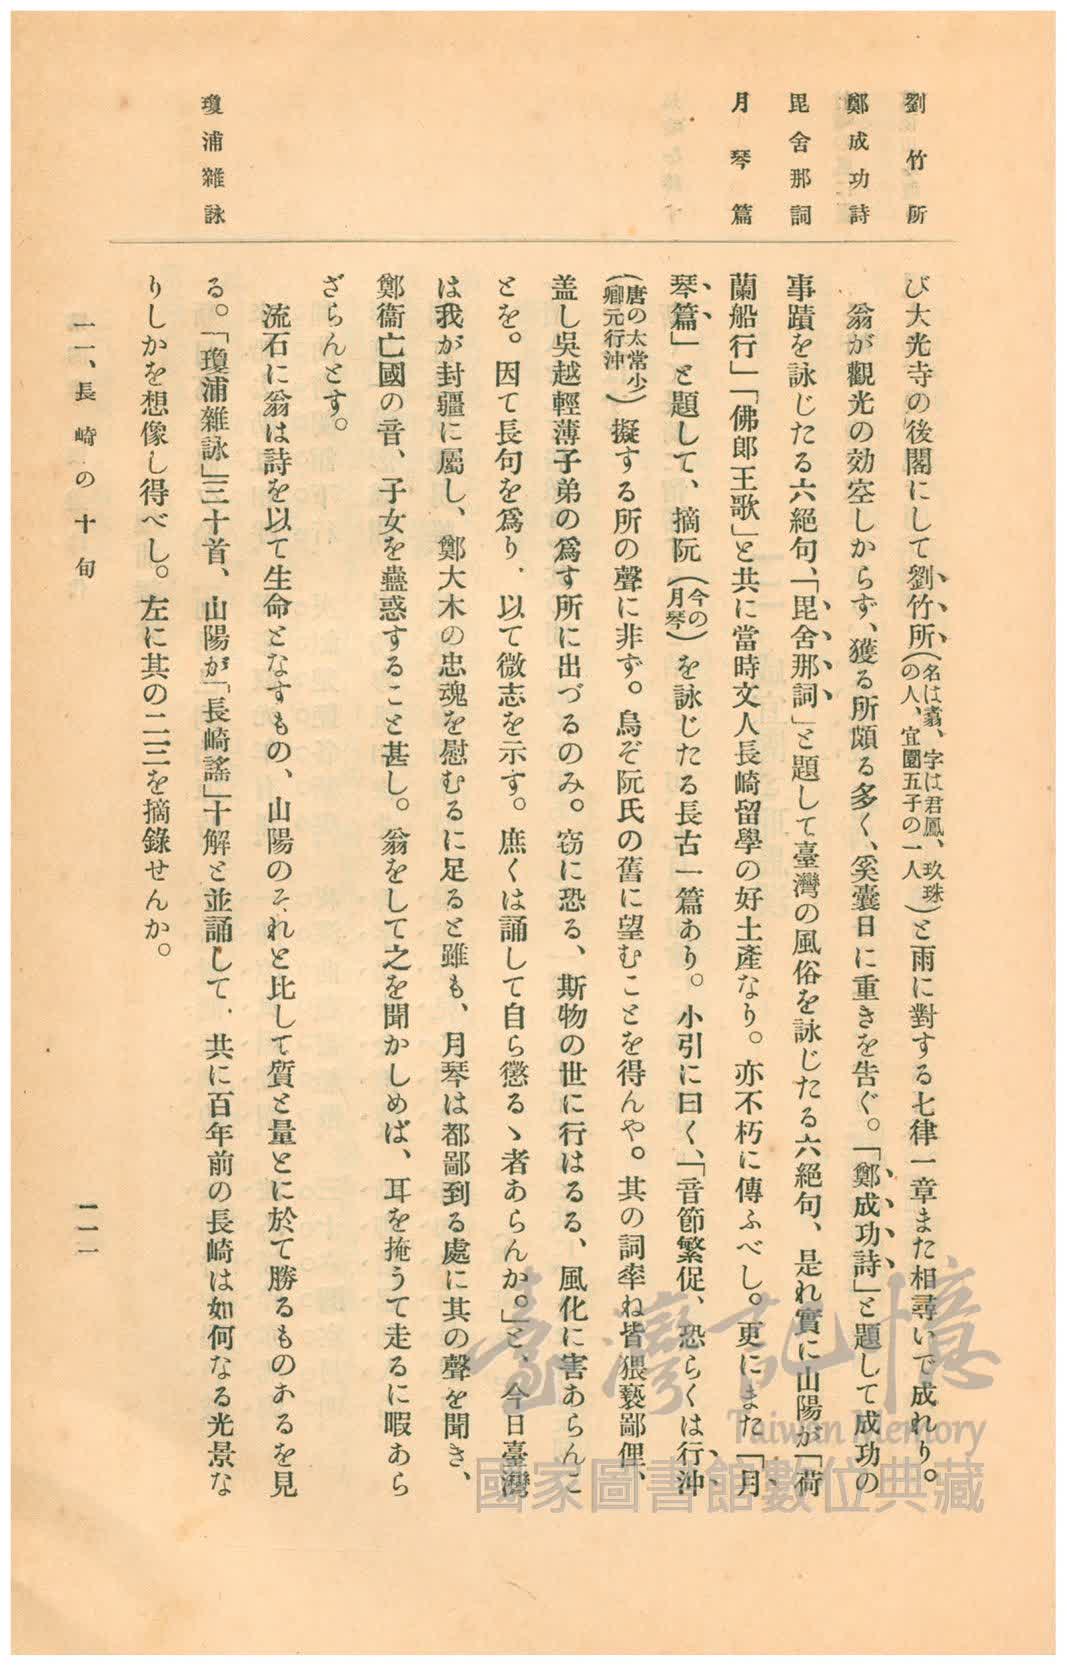 劉竹所
鄭成功詩
毘舍那詞
月琴篇
瓊浦雜詠
び大光寺の後閣にして劉竹所(名は翥、字は君鳳、玖珠の人、宜園五子の一人)と雨に對する七律一章また相尋いで成れり。
翁が觀光の効空しからず、獲る所頗る多く、奚囊日に重きを告ぐ。「鄭成功詩」と題して成功の
事蹟を詠じたる六絕句、「毘舍那詞」と題して臺灣の風俗を詠じたる六絕句、是れ實に山陽が「荷
蘭船行」「佛郎王歌」と共に當時文人長崎留學の好土產なり。亦不朽に傳ふべし。更にまた「月
琴篇」と題して、摘阮(今の月琴)を詠じたる長古一篇あり。小引に曰く、「音節繁促、恐らくは行沖
(唐の太常少卿元行沖)擬する所の聲に非ず。烏ぞ阮氏の舊に望むことを得んや。其の詞率ね皆猥褻鄙俚、
盖し吳越輕薄子弟の爲す所に出づるのみ。窃に恐る、斯物の世に行はるる、風化に害あらんに
とを。因て長句を爲り、以て微志を示す。庶くは誦して自ら懲るゝ者あらんか。」と、今日臺灣
は我が封疆に屬し、鄭大木の忠魂を慰むるに足ると雖も、月琴は都鄙到る處に其の聲を聞き、
鄭衞亡國の音、子女を蠱惑すること甚し。翁をして之を聞かしめば、耳を掩うて走るに暇あら
ざらんとす。
流石に翁は詩を以て生命となすもの、山陽のそれと比して質と量とに於て勝るものあるを見
る。「瓊浦雜詠」三十首、山陽が「長崎謠」十解と並誦して、共に百年前の長崎は如何なる光景な
りしかを想像し得べし。左に其の二三を摘錄せんか。
二、長崎の十旬
二一
臺灣記憶
Taiwan Memory
國家圖書館數位典藏